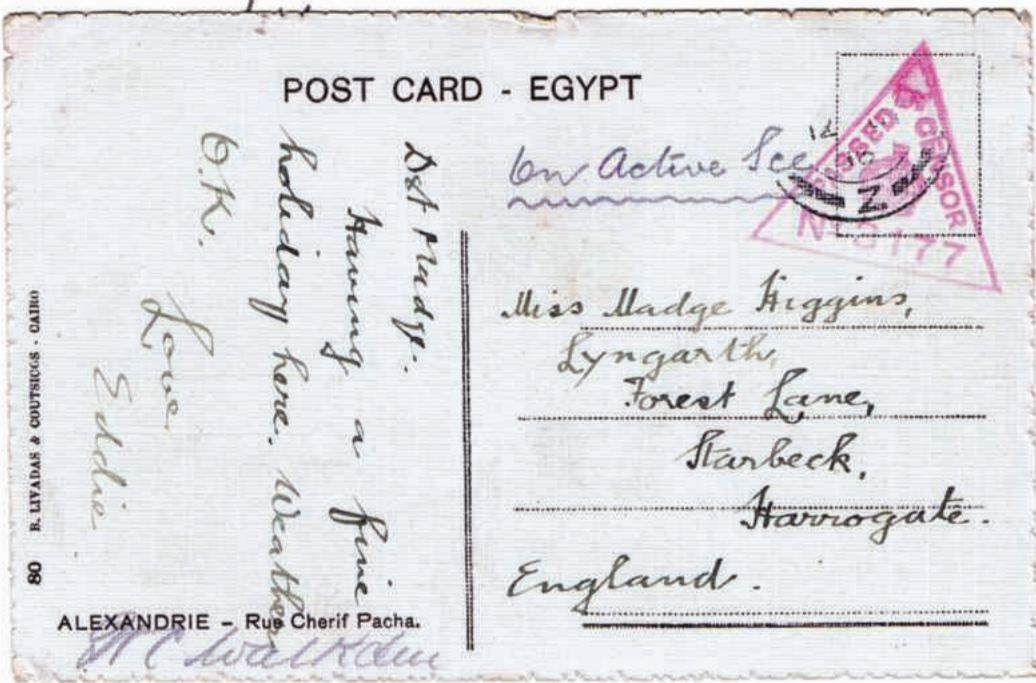 POST CARD - EGYPT
On Active Sce
PASSED BY CENSOR
No 3177
12
16
Z
Dst Madge.
Having a fine
holiday here. Weather
O.K.
Love
Eddie
Miss Madge Higgins,
Lyngarth,
Forest Lane,
Starbeck,
Harrogate.
England.
80 B. LIVADAS & COUTSICOS - CAIRO
ALEXANDRIE - Rue Cherif Pacha.
W C Walkden